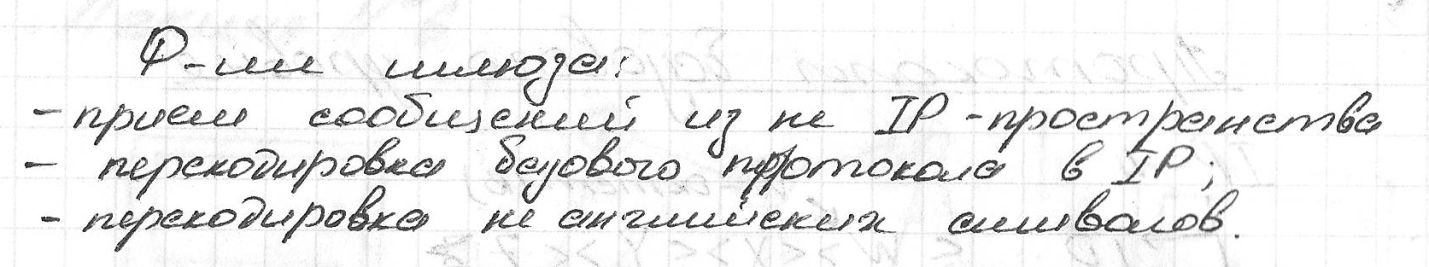 Ф-ии шлюза:
- прием сообщений из не IP-пространства
- перекодировка базового протокола в IP;
- перекодировка не английских символов.